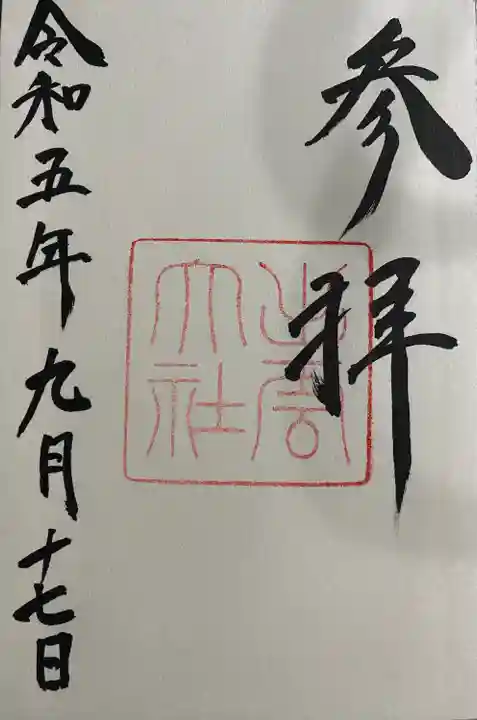 参拝
出雲
大社
令和五年九月十七日